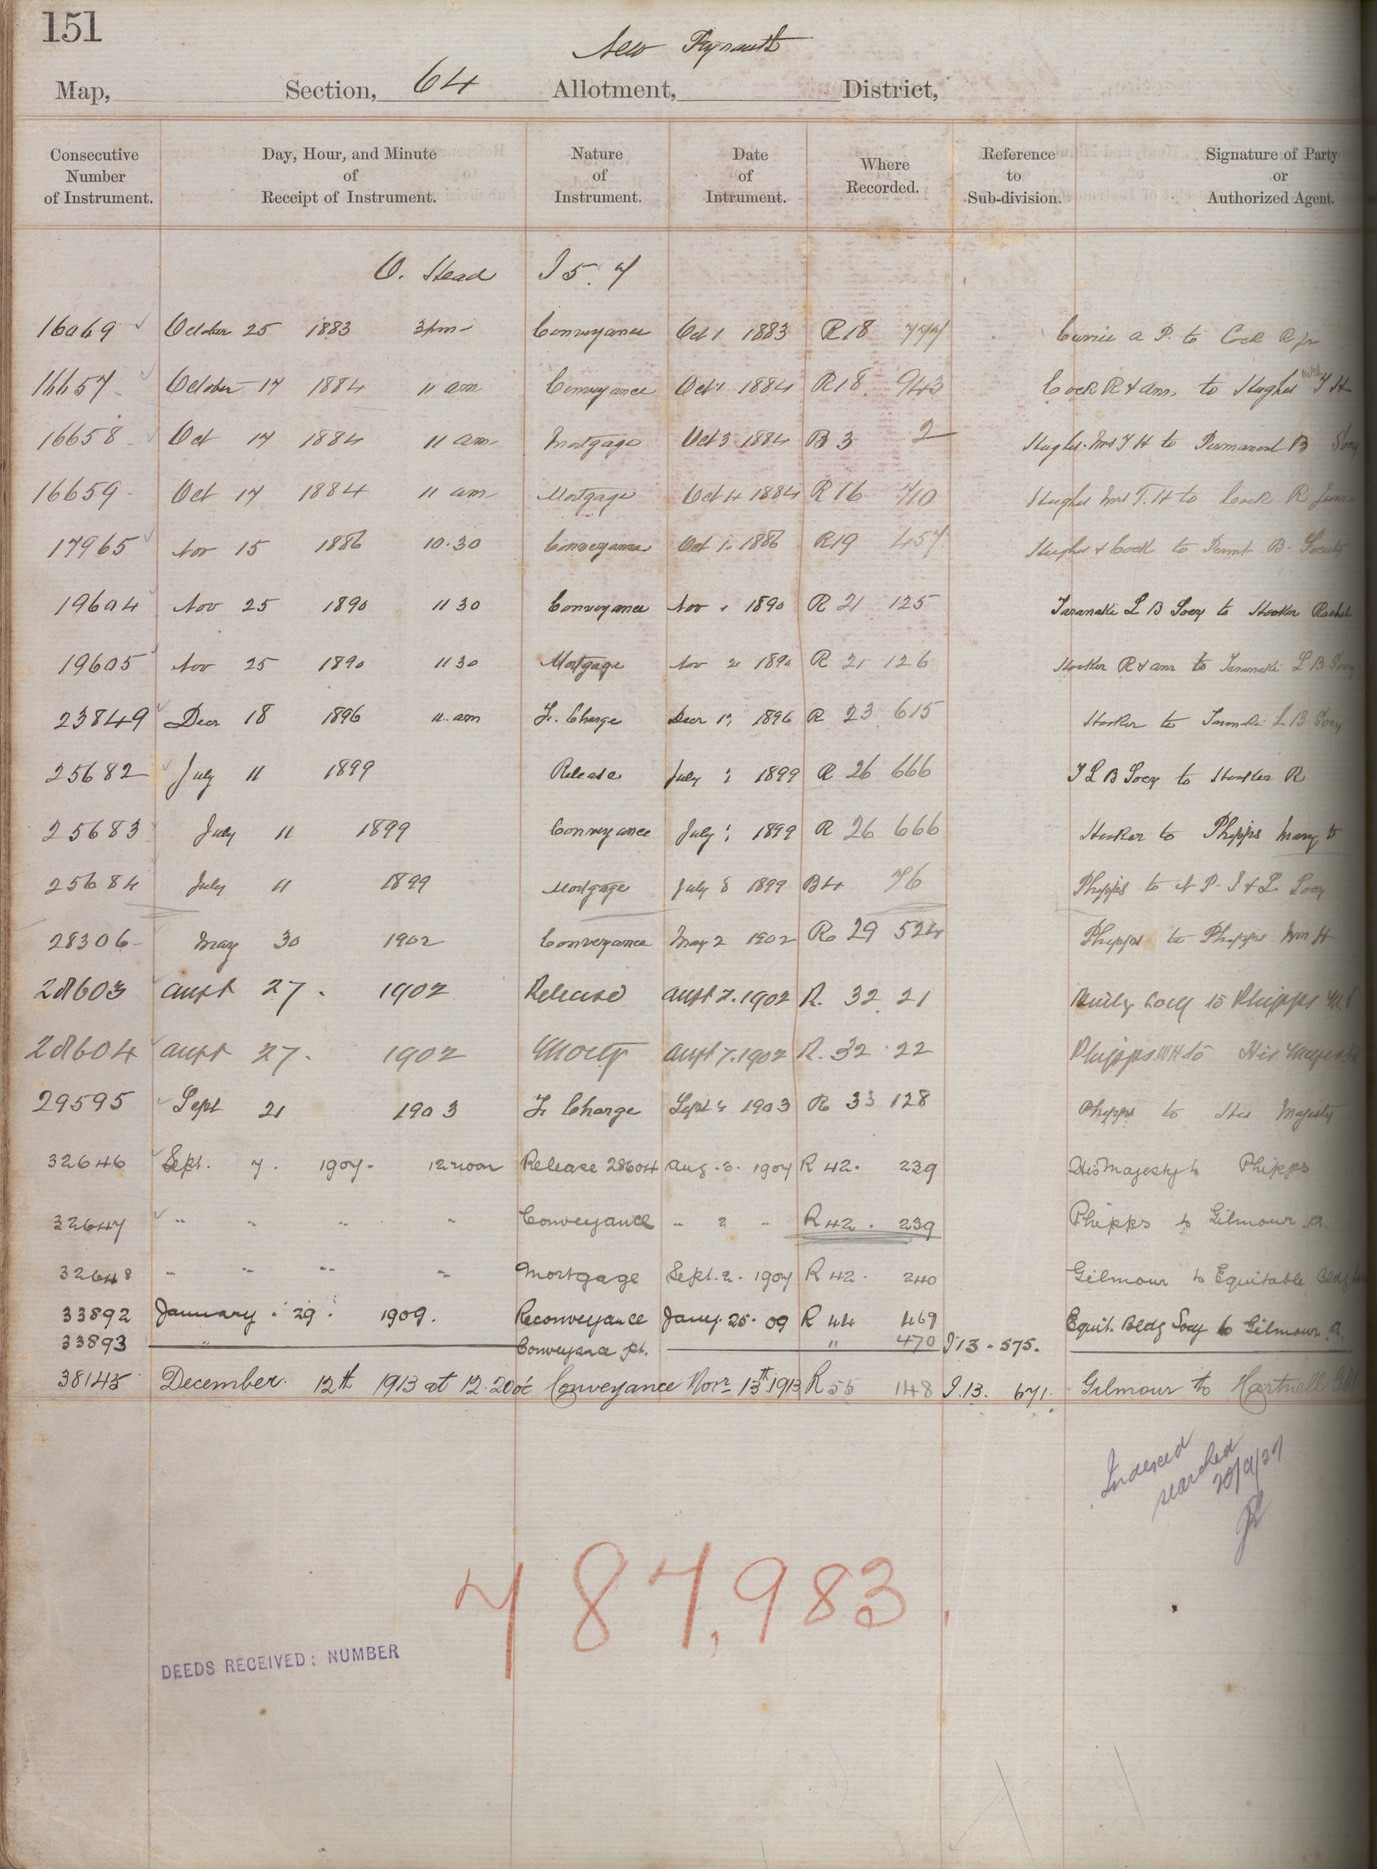 151
New Plymouth
Map, Section, 64 Allotment, District,
Consecutive Number of Instrument. Day, Hour, and Minute of Receipt of Instrument. Nature of Instrument. Date of Intrument. Where Recorded. Reference to Sub-division. Signature of Party or Authorized Agent.
O. Head I 5. 7
16069 October 25 1883 3pm Conveyance Oct 1 1883 R18 777 Currie A P. to Cock R jr
16657 October 17 1884 11 am Conveyance Oct 1884 R18 943 Cock R & anr to Hughes T H
16658 Oct 17 1884 11 am Mortgage Oct 3 1884 B 3 2 Hughes Mrs T H to Permanent B Socy
16659 Oct 17 1884 11 am Mortgage Oct 4 1884 R16 710 Hughes Mrs T. H to Cock R
17965 Nov 15 1886 10.30 Conveyance Oct 1886 R19 457 Hughes & Cock to Permt B. Society
19604 Nov 25 1890 11 30 Conveyance Nov 1890 R 21 125 Taranaki L B Socy to Hooker Rachel
19605 Nov 25 1890 11 30 Mortgage Nov 1890 R 21 126 Hooker R & anr to Taranaki L B Socy
23849 Decr 18 1896 11. am F. Charge Decr 1896 R 23 615 Hooker to Taranaki L B Socy
25682 July 11 1899 Release July 1899 R 26 666 T L B Socy to Hooker R
25683 July 11 1899 Conveyance July 1899 R 26 666 Hooker to Phipps Mary
25684 July 11 1899 Mortgage July 8 1899 B4 76 Phipps to N P. I & L Socy
28306 May 30 1902 Conveyance May 2 1902 R 29 524 Phipps to Phipps Wm H
28603 Augst 27. 1902 Release Augst 7. 1902 R. 32 21 Socy to Phipps
28604 Augst 27. 1902 Mortg Augst 7. 1902 R. 32 22 Phipps W H to His Majesty
29595 Sept 21 1903 F. Charge Sept 1903 R 33 128 Phipps to His Majesty
32646 Sept. 7. 1907. 12 noon Release 28604 Aug. 3. 1907 R 42. 239 His Majesty to Phipps
32647 " " " " Conveyance " 2 " R 42. 239 Phipps to Gilmour A.
32648 " " " " Mortgage Sept. 2. 1907 R 42. 240 Gilmour to Equitable Bldg
33892 January 29. 1909. Reconveyance Jany. 25. 09 R 44 469 Equit. Bldg Socy to Gilmour A.
33893 " Conveyance pt. " 470 I 13. 575.
38145 December 12th 1913 at 12.20 oc Conveyance Novr 13th 1913 R 55 148 I. 13. 671. Gilmour to Hartnell
Indexed
searched
20/9/27
487,983.
DEEDS RECEIVED: NUMBER